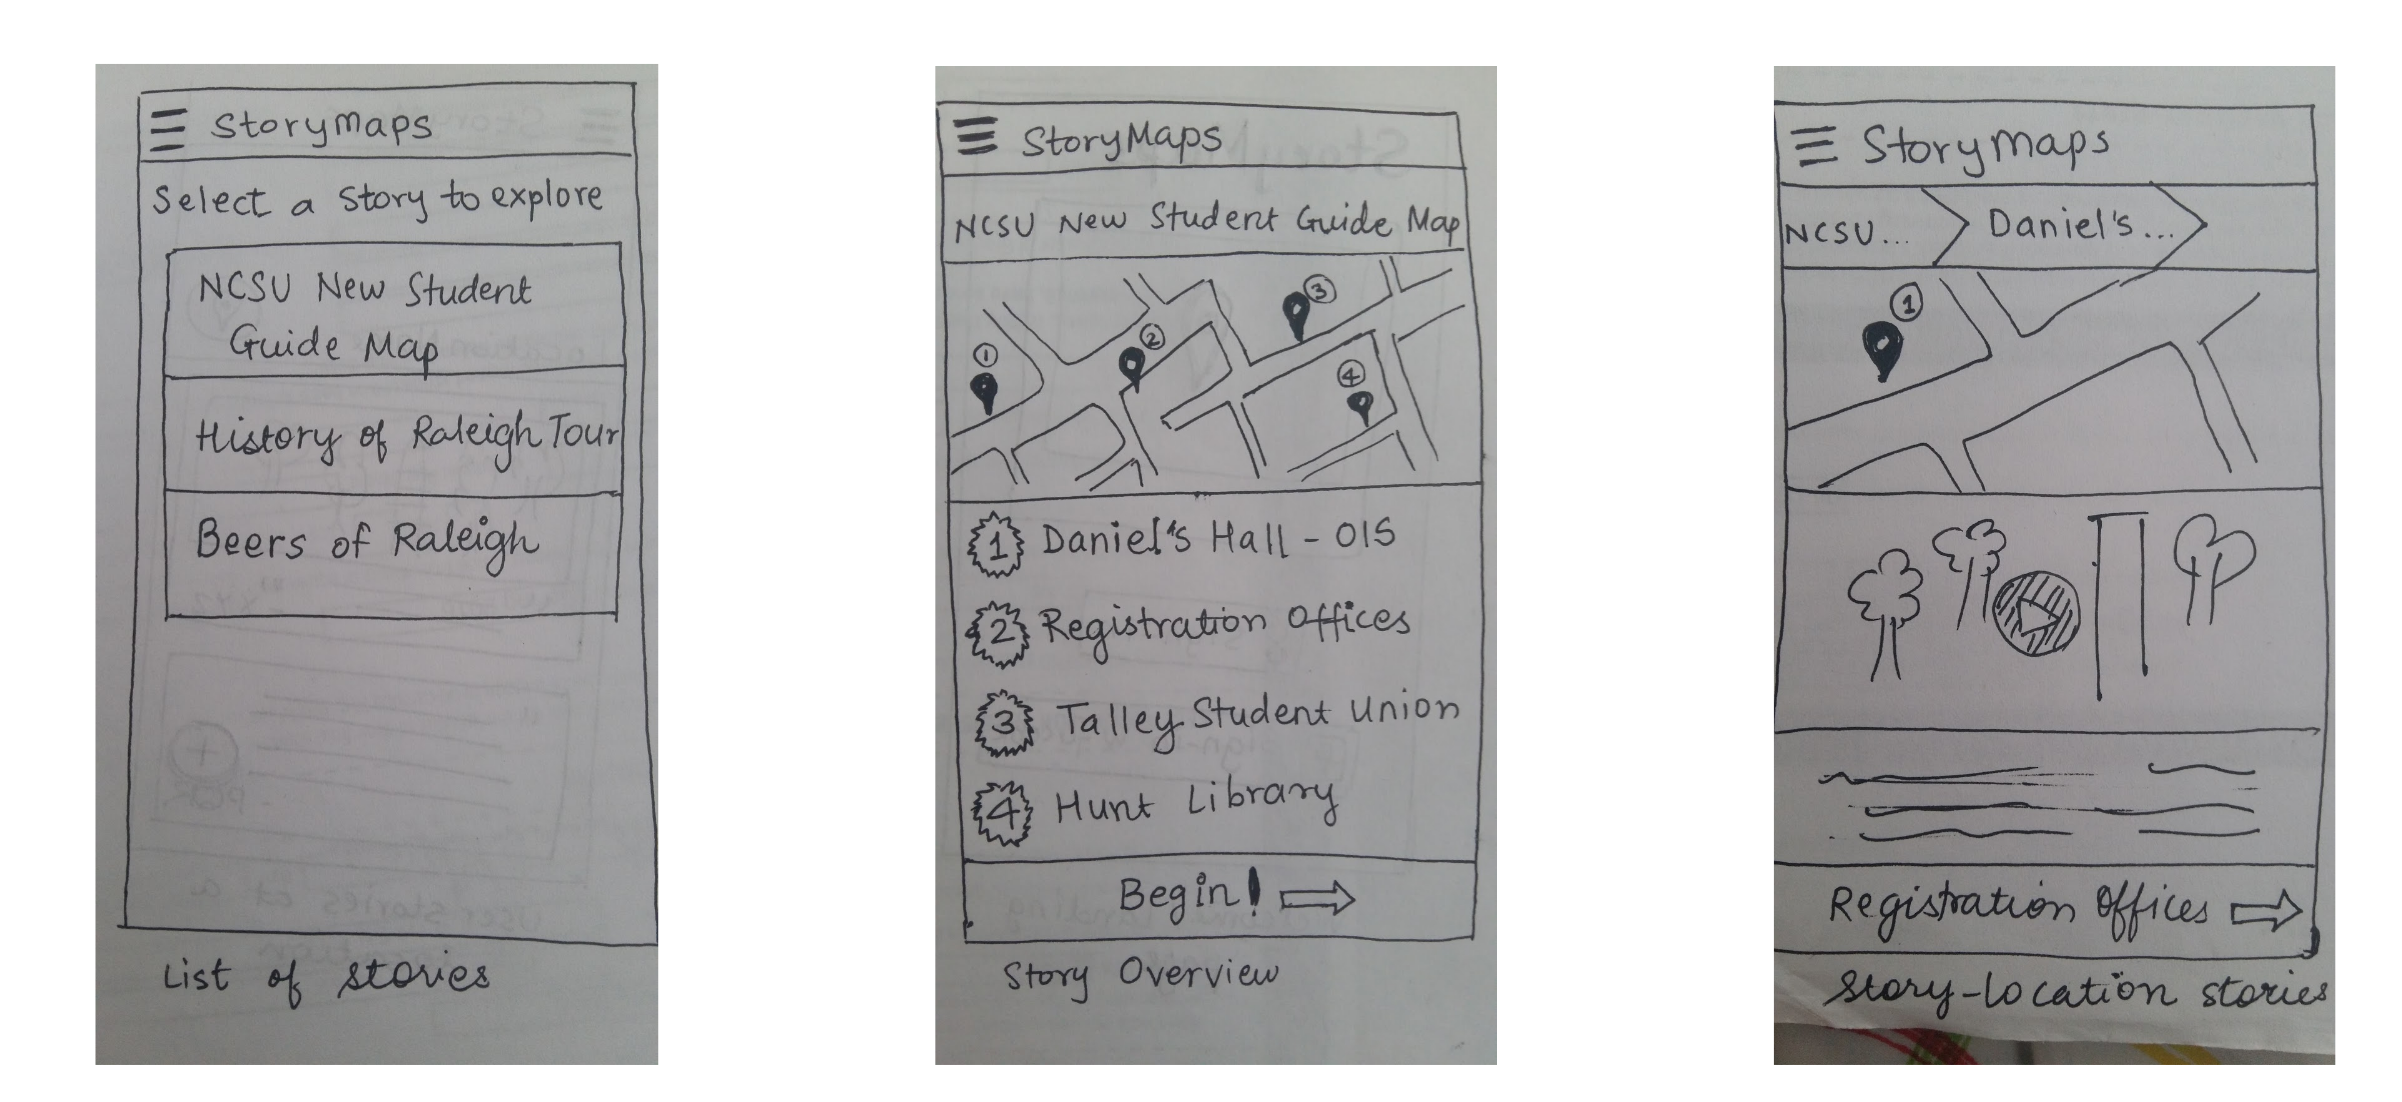 StoryMaps
Select a Story to explore
NCSU New Student
Guide Map
History of Raleigh Tour
Beers of Raleigh
List of stories
StoryMaps
NCSU New Student Guide Map
1
2
3
4
1 Daniel's Hall - OIS
2 Registration Offices
3 Talley Student Union
4 Hunt Library
Begin!
Story Overview
StoryMaps
NCSU... Daniel's...
1
Registration Offices
Story-location stories